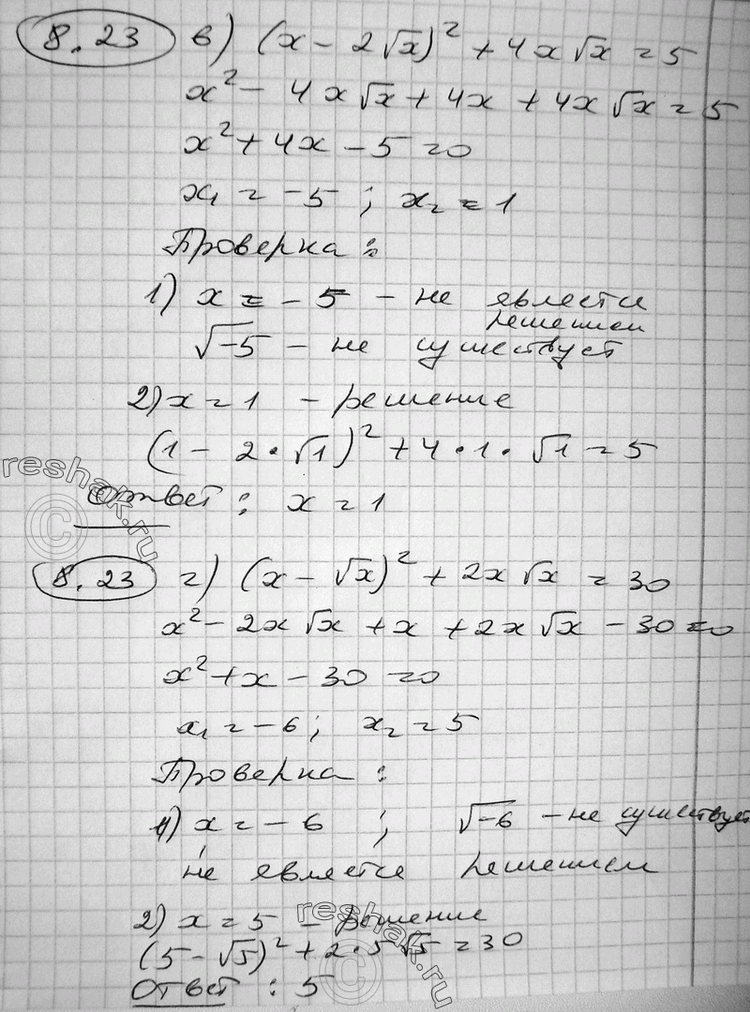 8.23 в) (x - 2√x)² + 4x√x = 5
x² - 4x√x + 4x + 4x√x = 5
x² + 4x - 5 = 0
x₁ = -5 ; x₂ = 1
Проверка :
1) x = -5 - не явлется решением
√-5 - не существует
2) x = 1 - решение
(1 - 2·√1)² + 4·1·√1 = 5
Ответ : x = 1
8.23 г) (x - √x)² + 2x√x = 30
x² - 2x√x + x + 2x√x - 30 = 0
x² + x - 30 = 0
x₁ = -6 ; x₂ = 5
Проверка :
1) x = -6 ; √-6 - не существует
не является решением
2) x = 5 - решение
(5 - √5)² + 2·5√5 = 30
Ответ : 5
reshak.ru
reshak.ru